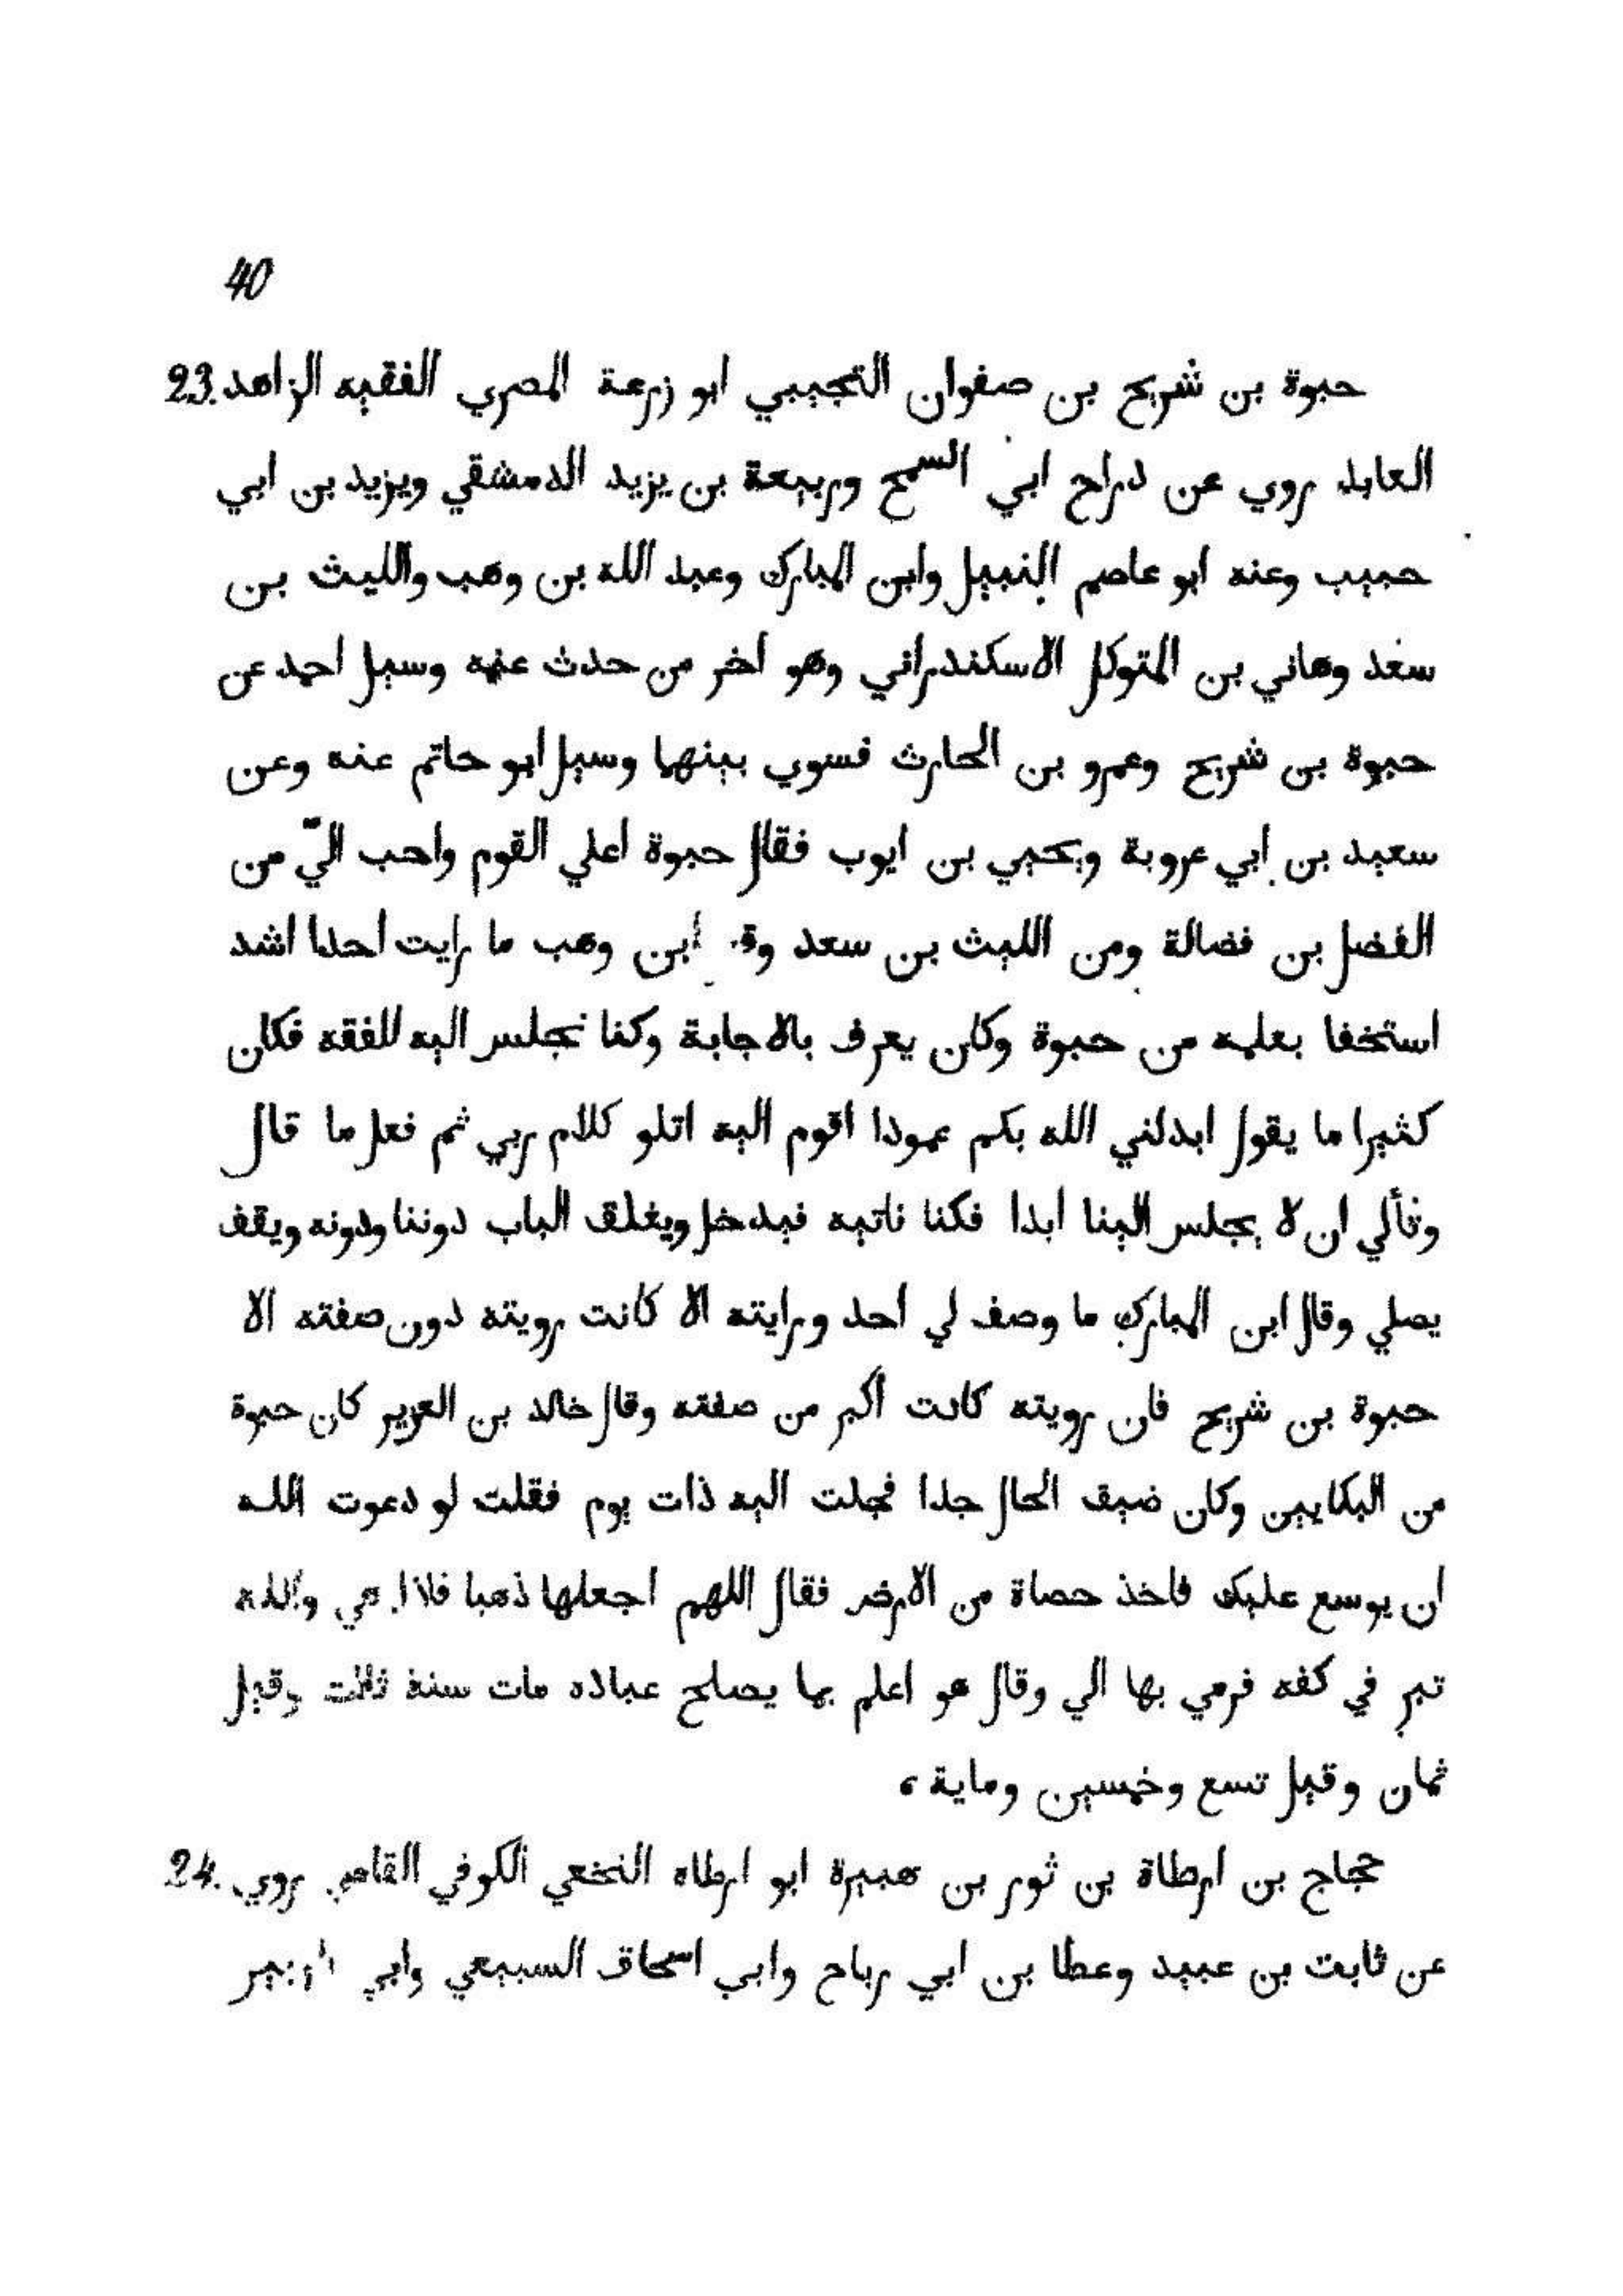 40
حيوة بن شريح بن صفوان التجيبي ابو زرعة المصري الفقيه الزاهد .23
العابد روي عن دراح ابي السمح وربيعة بن يزيد الدمشقي ويزيد بن ابي
حبيب وعنه ابو عاصم النبيل وابن المبارك وعبد الله بن وهب والليث بن
سعد وهاني بن المتوكل الاسكندراني وهو اخر من حدث عنه وسيل احمد عن
حيوة بن شريح وعمرو بن الحارث فسوي بينهما وسيل ابو حاتم عنه وعن
سعيد بن ابي عروبة ويحيي بن ايوب فقال حيوة اعلي القوم واحب اليّ من
الفضل بن فضالة ومن الليث بن سعد ابن وهب ما رايت احدا اشد
استخفا بعليه من حيوة وكان يعرف بالاجابة وكنا نجلس اليه للفقه فكان
كثيرا ما يقول ابدلني الله بكم عمودا اقوم اليه اتلو كلام ربي ثم فعل ما قال
وتألي ان لا يجلس الينا ابدا فكنا ناتيه فيدخل ويغلق الباب دوننا ودونه ويقف
يصلي وقال ابن المبارك ما وصف لي احد ورايته الا كانت رويته دون صفته الا
حيوة بن شريح فان رويته كانت أكبر من صفته وقال خالد بن العزير كان حيوة
من البكايين وكان ضيق الحال جدا فجلت اليه ذات يوم فقلت لو دعوت الله
ان يوسع عليك فاخذ حصاة من الارض فقال اللهم اجعلها ذهبا فاذا هي والله
تبر في كفه فرمي بها الي وقال هو اعلم بما يصلح عباده مات سنة ثلاث وقيل
ثمان وقيل تسع وخمسين وماية ،
حجاج بن ارطاة بن ثور بن هبيرة ابو ارطاه النخعي الكوفي القاضي روي .24
عن ثابت بن عبيد وعطا بن ابي رباح وابي اسحاق السبيعي وابي